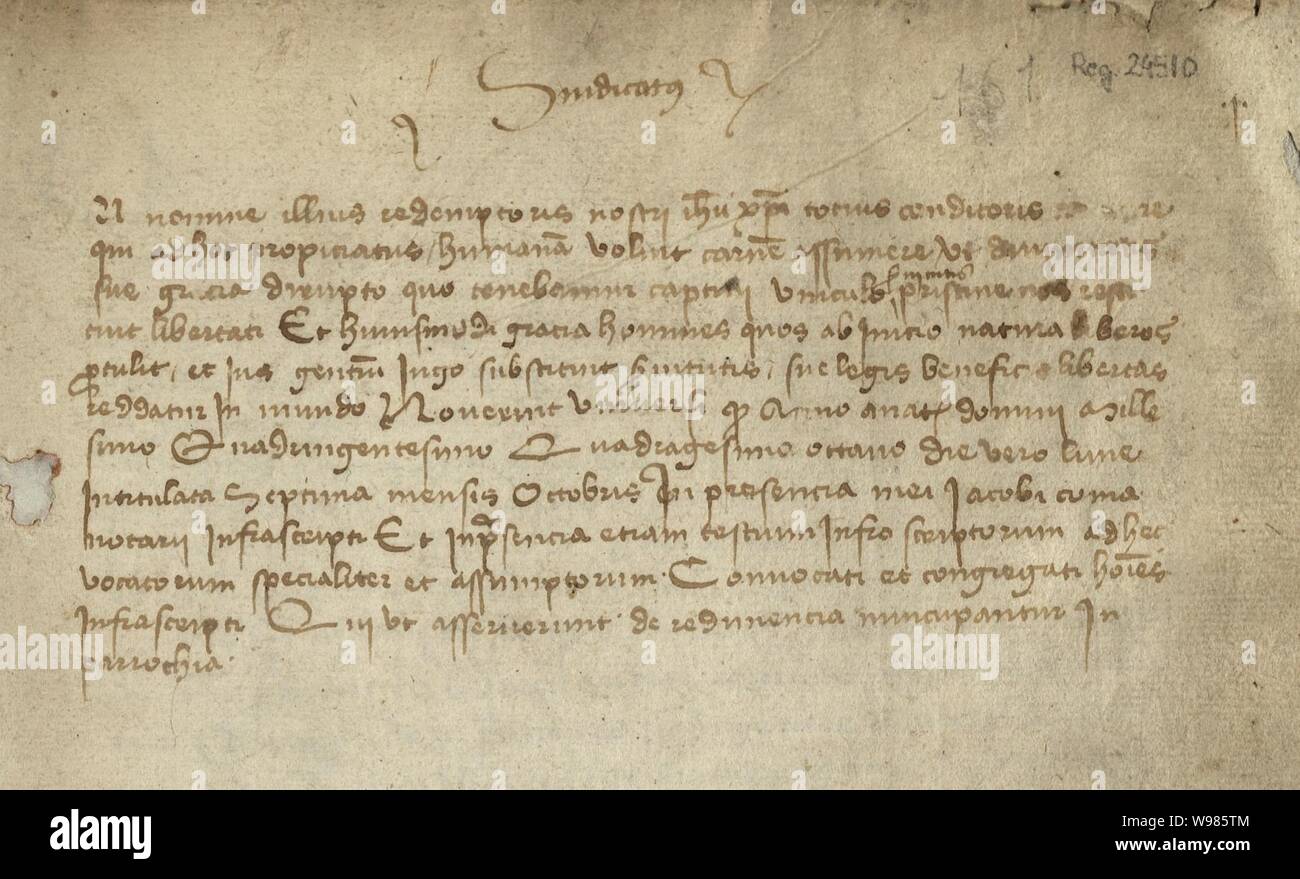 Sindicatus
161 Reg. 24510
N nomine illius redemptoris nostri ihu xpi tocius conditoris re
qui ad hoc propiciatus humanā voluit carnē assumere ut
sue gracia dirupto quo tenebamur captivi vinculo pristine nos resti
tuit libertati Et huiusmodi gracia homines quos ab Inicio natura liberos
ptulit et Ius gentiū Iugo substituit suitutis sue legis beneficio libertas
reddatur In mundo Noverint universi qd Anno a nat domini Mille
simo Quadringentesimo Quadragesimo octavo die vero lune
Intitulata Septima mensis Octobris In presencia mei Jacobi coma
notarii Infrascripti Et In psencia etiam testium Infro scriptorum ad hec
vocatorum specialiter et assumptorum Convocati et congregati hoīes
Infrascripti Qui ut asseruerunt de redimencia nuncupantur In
parrochia
alamy
Image ID: W985TM
www.alamy.com